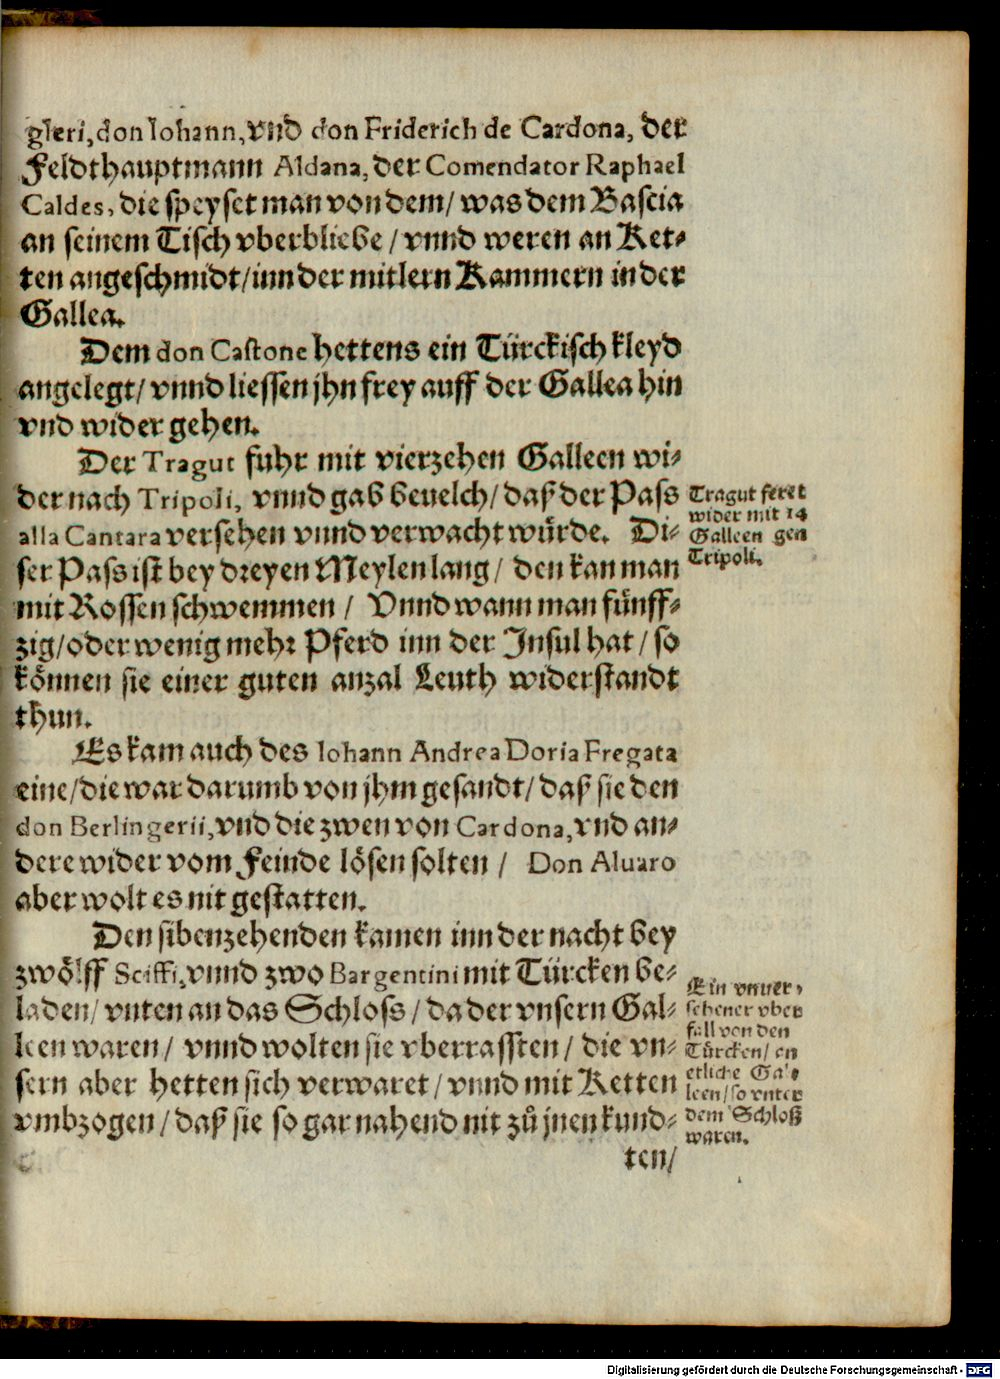 gleri, don Iohann, vnd don Friderich de Cardona, der
Feldthauptmann Aldana, der Comendator Raphael
Caldes, die speyset man von dem/ was dem Bascia
an seinem Tisch vberbliebe/ vnnd weren an Ket-
ten angeschmidt/ inn der mitlern Kammern in der
Gallea.
Dem don Castone hettens ein Türckisch kleyd
angelegt/ vnnd liessen jhn frey auff der Gallea hin
vnd wider gehen.
Der Tragut fuhr mit vierzehen Galleen wi-
der nach Tripoli, vnnd gab beuelch/ daß der Pass
alla Cantara versehen vnnd verwacht würde. Di-
ser Pass ist bey dreyen Meylen lang/ den kan man
mit Rossen schwemmen/ Vnnd wann man fünff-
zig/ oder wenig mehr Pferd inn der Insul hat/ so
können sie einer guten anzal Leuth widerstandt
thun.
Tragut feret
wider mit 14
Galleen gen
Tripoli.
Es kam auch des Iohann Andrea Doria Fregata
eine/ die war darumb von jhm gesandt/ daß sie den
don Berlingerii, vnd die zwen von Cardona, vnd an-
dere wider vom Feinde lösen solten/ Don Aluaro
aber wolt es nit gestatten.
Den sibenzehenden kamen inn der nacht bey
zwölff Sciffi, vnnd zwo Bargentini mit Türcken be-
laden/ vnten an das Schloss/ da der vnsern Gal-
leen waren/ vnnd wolten sie vberrassten/ die vn-
sern aber hetten sich verwaret/ vnnd mit Ketten
vmbzogen/ daß sie so gar nahend nit zů jnen kund-
ten/
Ein vnuer-
sehener vber
fall von den
Türcken/ an
etliche Gal-
leen/ so vnter
dem Schloß
waren.
Digitalisierung gefördert durch die Deutsche Forschungsgemeinschaft - DFG